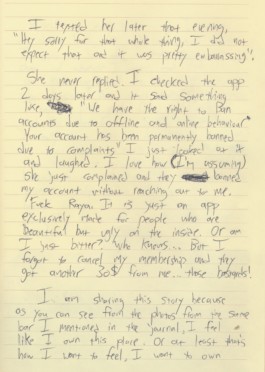 I texted her later that evening,
"Hey sorry for that whole thing, I did not
expect that and it was pretty embarrassing".
She never replied. I checked the app
2 days later and it said something
like, "We have the right to Ban
accounts due to offline and online behaviour"
"Your account has been permanently banned
due to complaints" I just looked at it
and laughed. I love how (I'm assuming)
she just complained and they banned
my account without reaching out to me.
Fuck Raya. It is just an app
exclusively made for people who are
beautiful but ugly on the inside. Or am
I just bitter? Who knows... But I
forgot to cancel my membership and they
got another 30$ from me... those bastards!
I am sharing this story because
as you can see from the photos from the same
bar I mentioned in the journal, I feel
like I own this place. Or at least that's
how I want to feel, I want to own